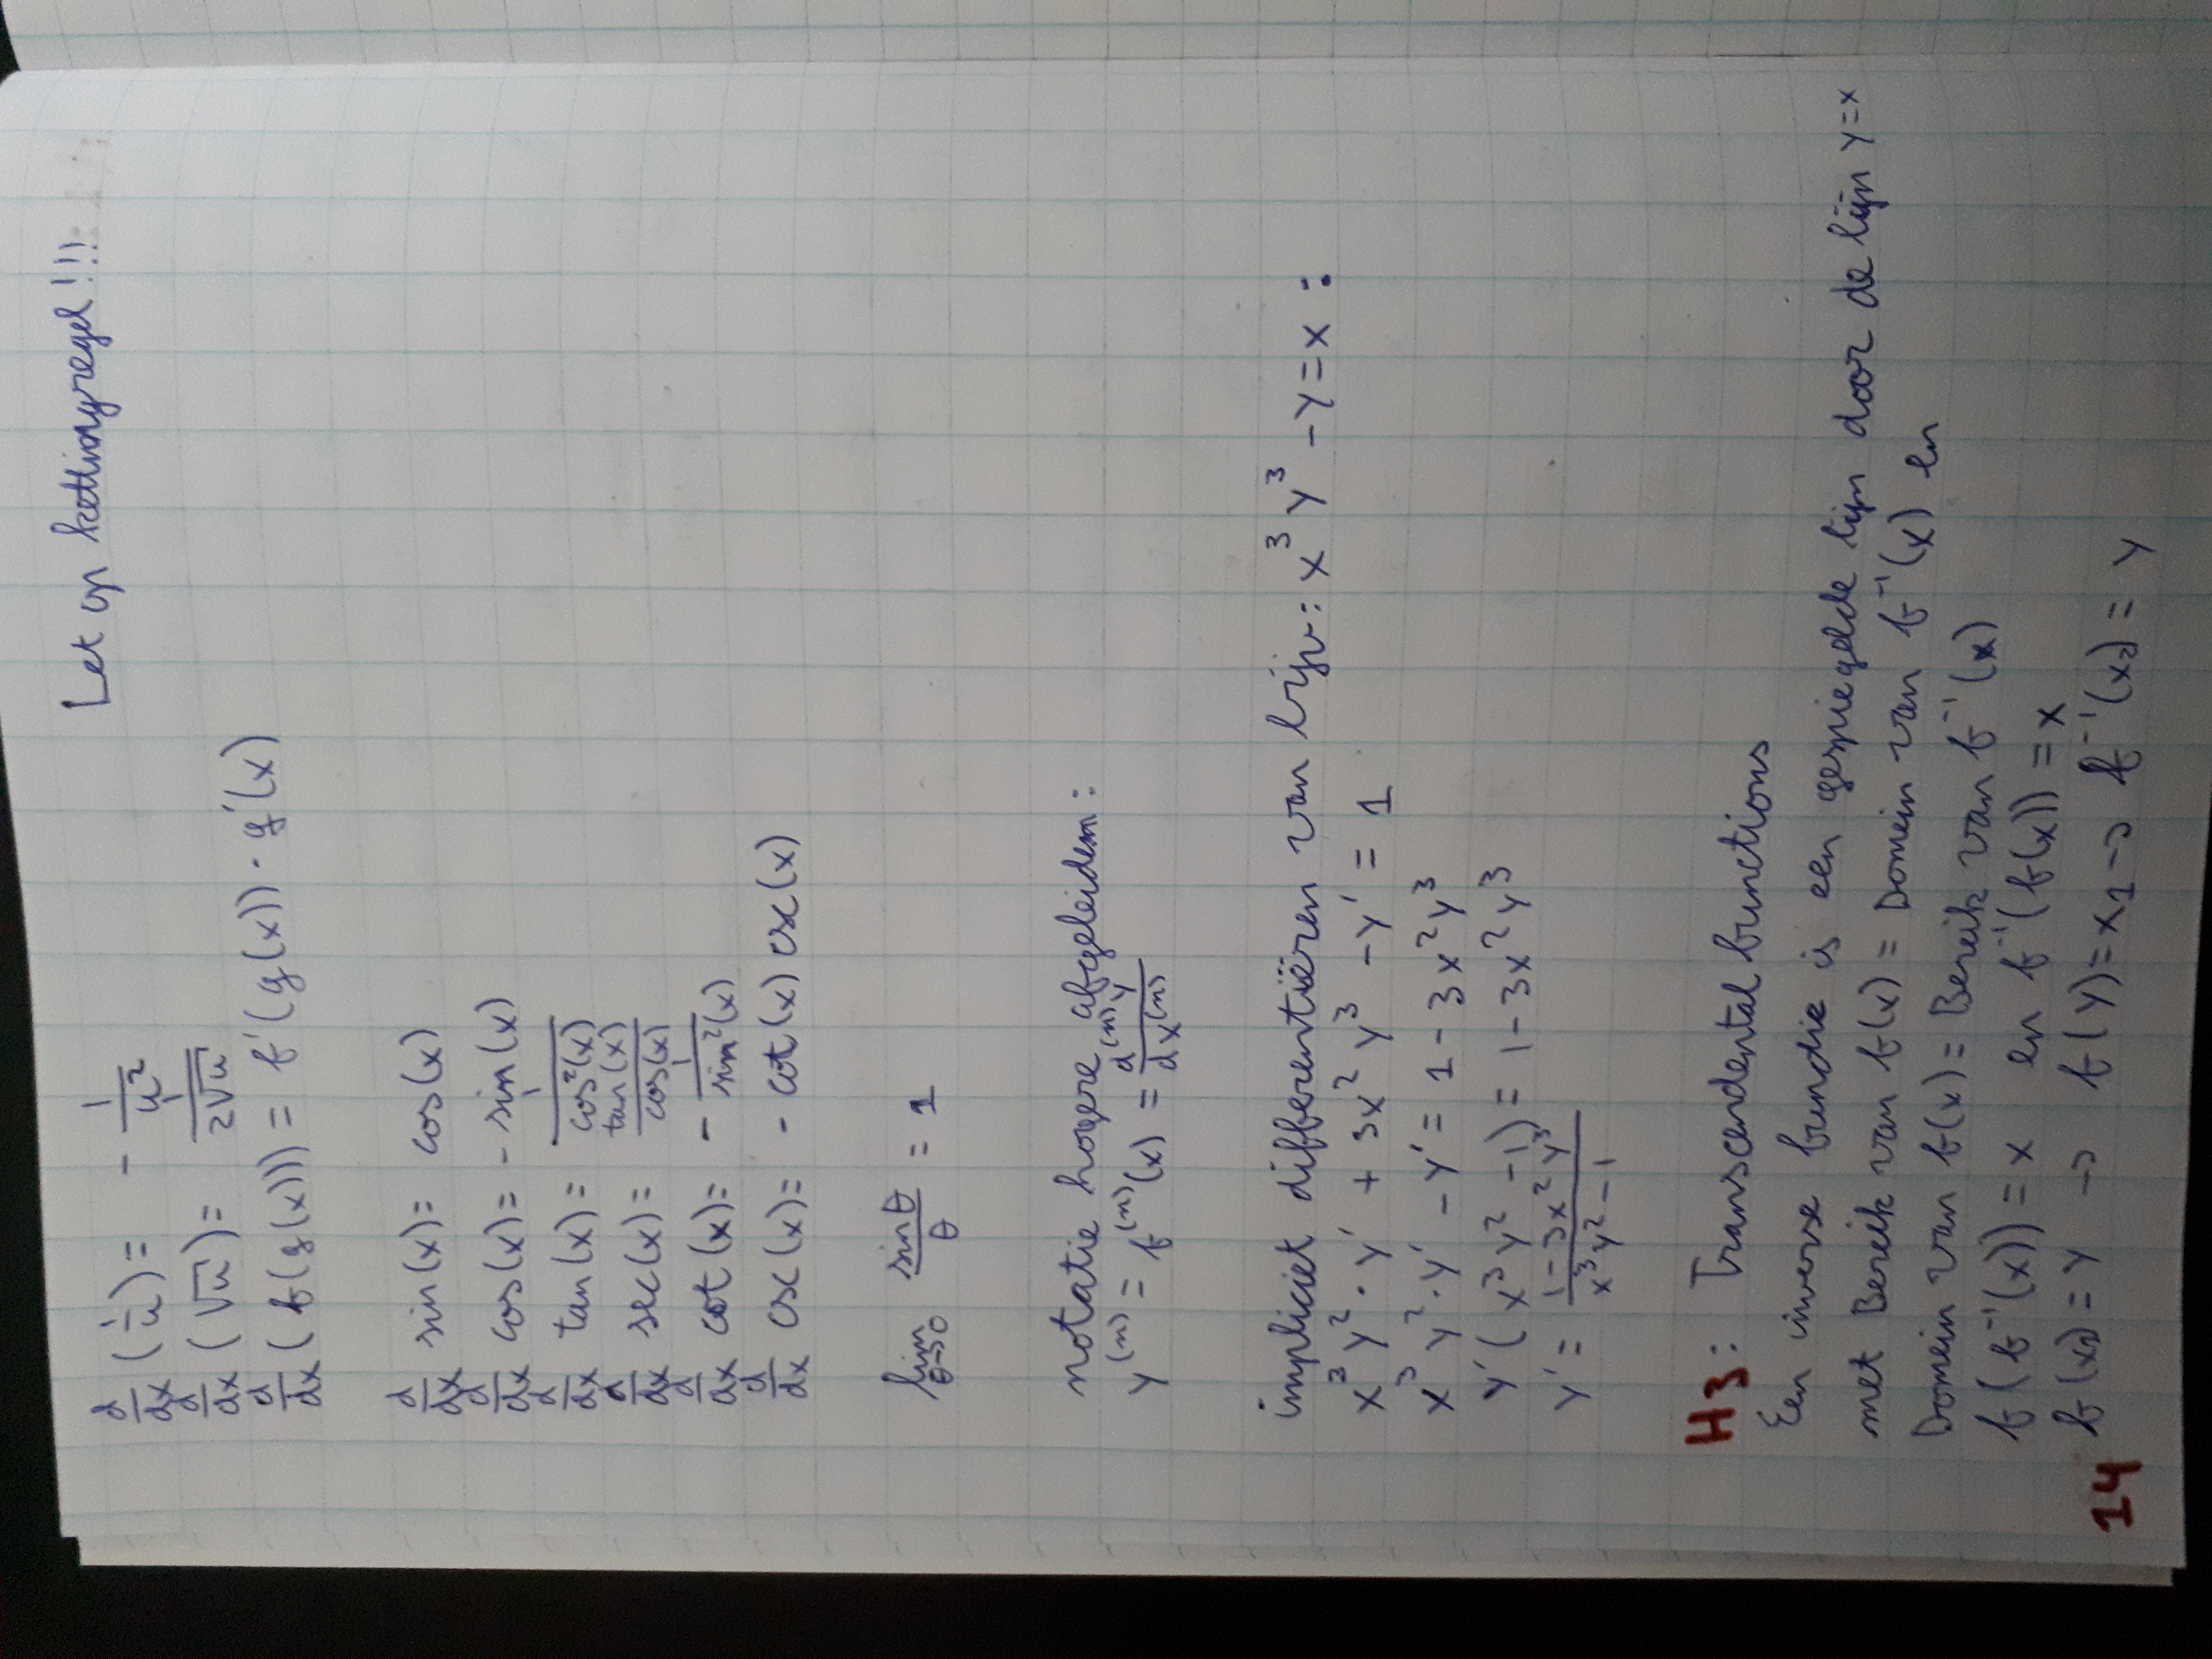 Let op kettingregel!!!
d/dx (1/u) = - 1/u²
d/dx (√u) = 1/2√u
d/dx (f(g(x))) = f'(g(x)) · g'(x)
d/dx sin(x) = cos(x)
d/dx cos(x) = - sin(x)
d/dx tan(x) = 1/cos²(x)
d/dx sec(x) = tan(x)/cos(x)
d/dx cot(x) = - 1/sin²(x)
d/dx csc(x) = - cot(x) csc(x)
lim θ→0 sinθ/θ = 1
notatie hogere afgeleiden:
y⁽ⁿ⁾ = f⁽ⁿ⁾(x) = d⁽ⁿ⁾y/dx⁽ⁿ⁾
impliciet differentiëren van bijv: x³y³ - y = x :
x³y² · y' + 3x²y³ - y' = 1
x³y² · y' - y' = 1 - 3x²y³
y'(x³y² - 1) = 1 - 3x²y³
y' = 1 - 3x²y³/x³y² - 1
H3: Transcendental functions
Een inverse functie is een gespiegelde lijn door de lijn y=x
met Bereik van f(x) = Domein van f⁻¹(x) en
Domein van f(x) = Bereik van f⁻¹(x)
f(f⁻¹(x)) = x en f⁻¹(f(x)) = x
f(x₁) = y → f(y) = x₁ → f⁻¹(x₂) = y
14